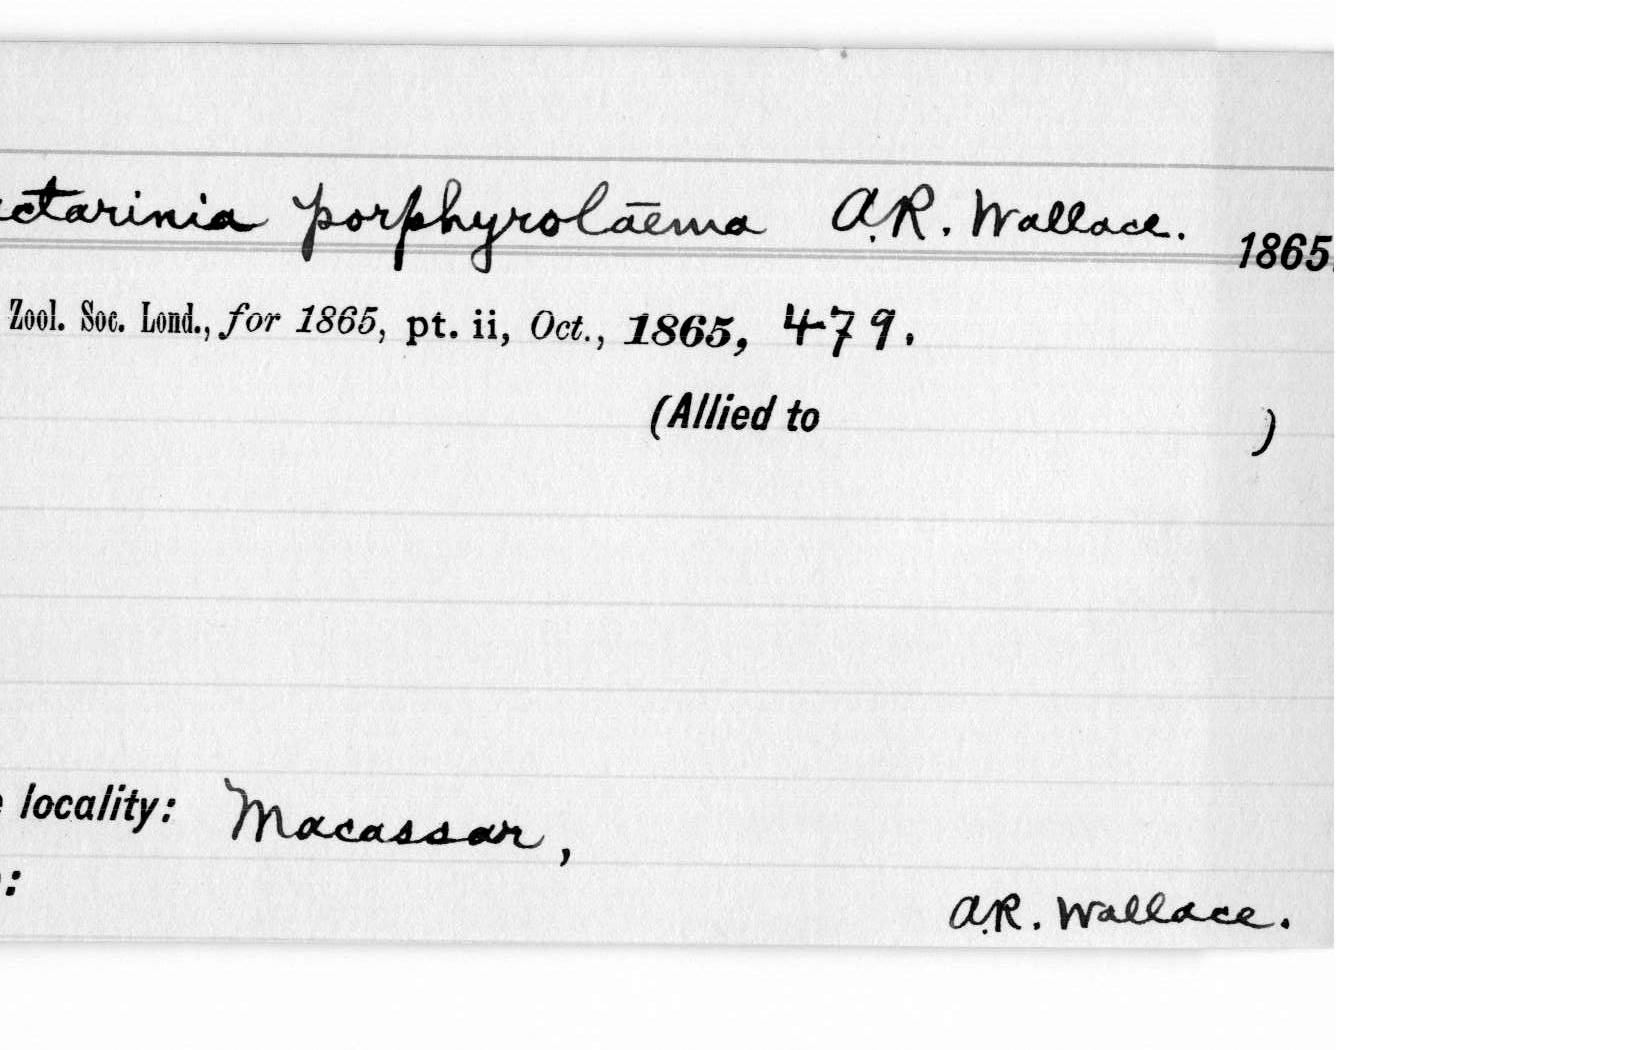 ctarinia porphyrolāema A.R. Wallace. 1865.
Zool. Soc. Lond., for 1865, pt. ii, Oct., 1865, 479.
(Allied to )
locality: Macassar,
:
A.R. Wallace.